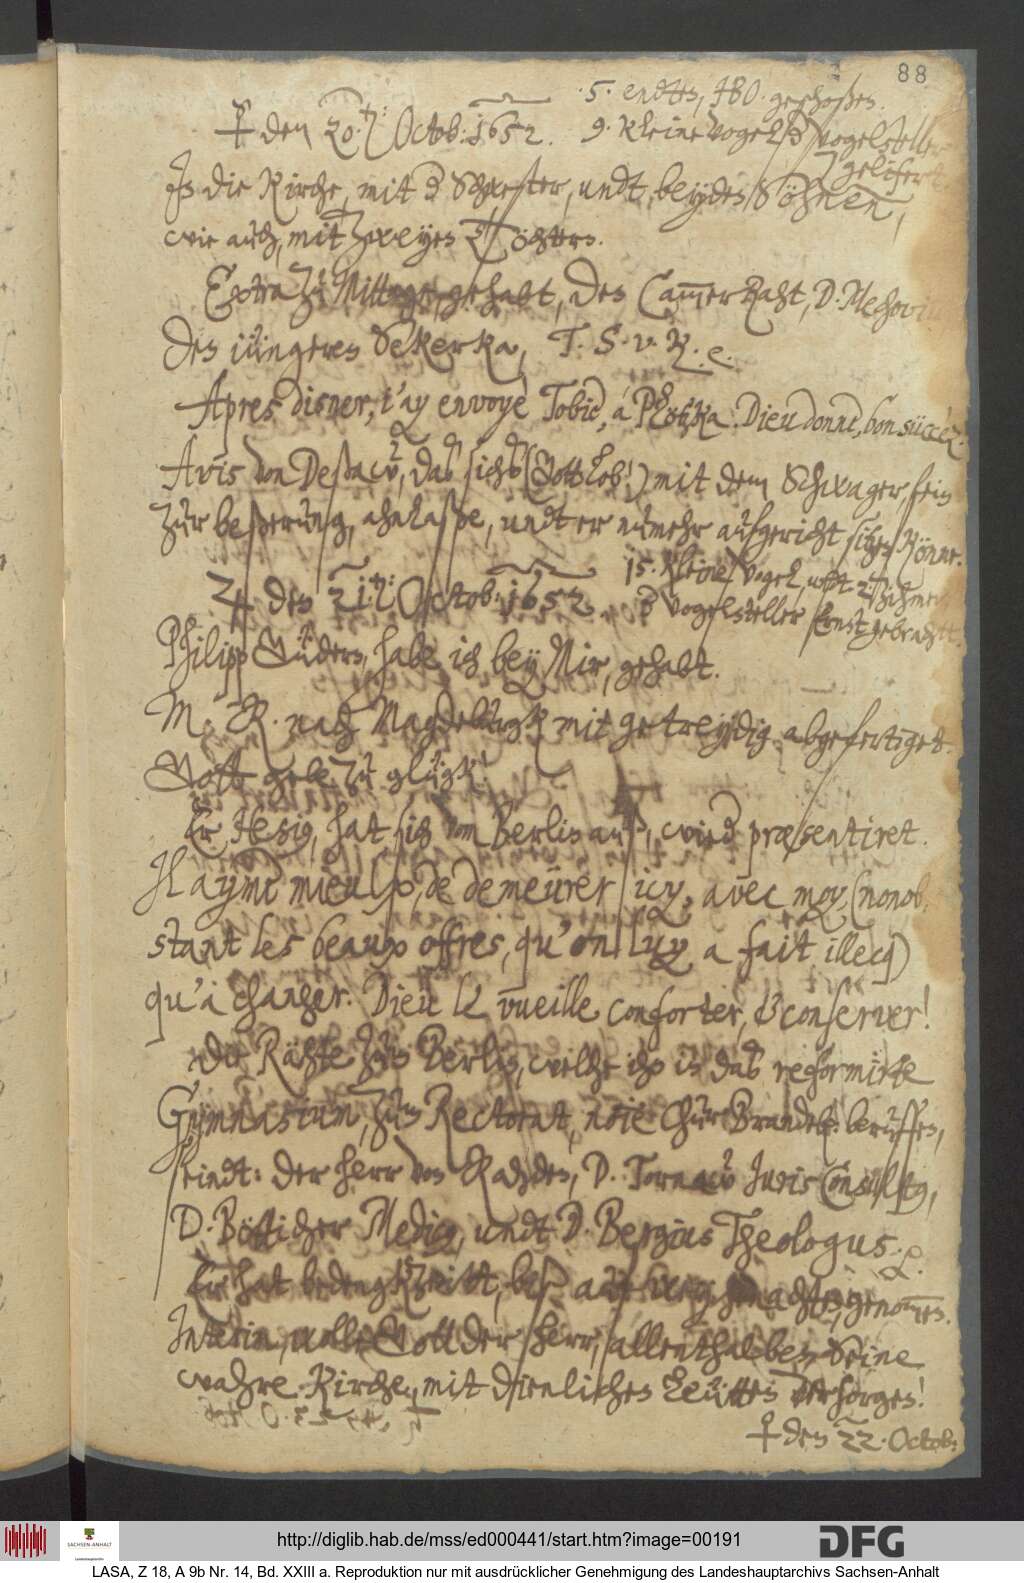 88
5. endten, hat O. geschoßen.
☿ den 20.ten: Octob: 1652. 9. kleine vogel, der vogelsteller
geliefert
In die Kirche, mit der Schwester, undt, beyden Söhnen,
wie auch, mit zweyen Töchtern.
Extra zu Mittage, gehabt, den CammerRaht, D. Mechovius
den iüngeren Sekerka, T. S. v. R. e.
Apres disner, j'ay envoyè Tobie, á Plötzka: Dieu donne, bon succéz.
Avis von Deßaw, das sichs (Gott lob!) mit dem Schwager, fein
zur beßerung, ahnlaße, undt er nunmehr aufgericht sitzen könne.
15. kleine vogel, undt 2
♃ den 21.ten: Octob: 1652. der vogelsteller Ernst gebracht.
Philipp Güder, habe ich bey Mir, gehabt.
M. R. nach Magdeburgk mit getreydig abgefertiget.
Gott gebe zu glügk!
Er Jesig, hat sich von Berlin auß, wied præsentiret.
Il aymè mieulx, de demeurer icy, avec moy, (nonob-
stant les beaux offres, qu'on luy a fait illecq)
qu'à changer. Dieu le vueille conforter, & conserver!
Die Rähte zum Berlin, welche ihn in das reformirte
Gymnasium, zum Rectorat, no(m)i(n)e ChurBrandeb: beruffen,
seindt: der herr von Rahden, D. Tornow Juris Consultus,
D. Böttiger Medicus, undt D. Bergius Theologus. p.
Er hat bedengkZeitt, biß auf Weyhenachten, genommen.
Interim, wolle Gott der herr, allenthalben Seine
wahre Kirche, mit dienlichen Leütten versorgen!
☿ den 22. Octob:
http://diglib.hab.de/mss/ed000441/start.htm?image=00191
DFG
SACHSEN-ANHALT
LASA, Z 18, A 9b Nr. 14, Bd. XXIII a. Reproduktion nur mit ausdrücklicher Genehmigung des Landeshauptarchivs Sachsen-Anhalt